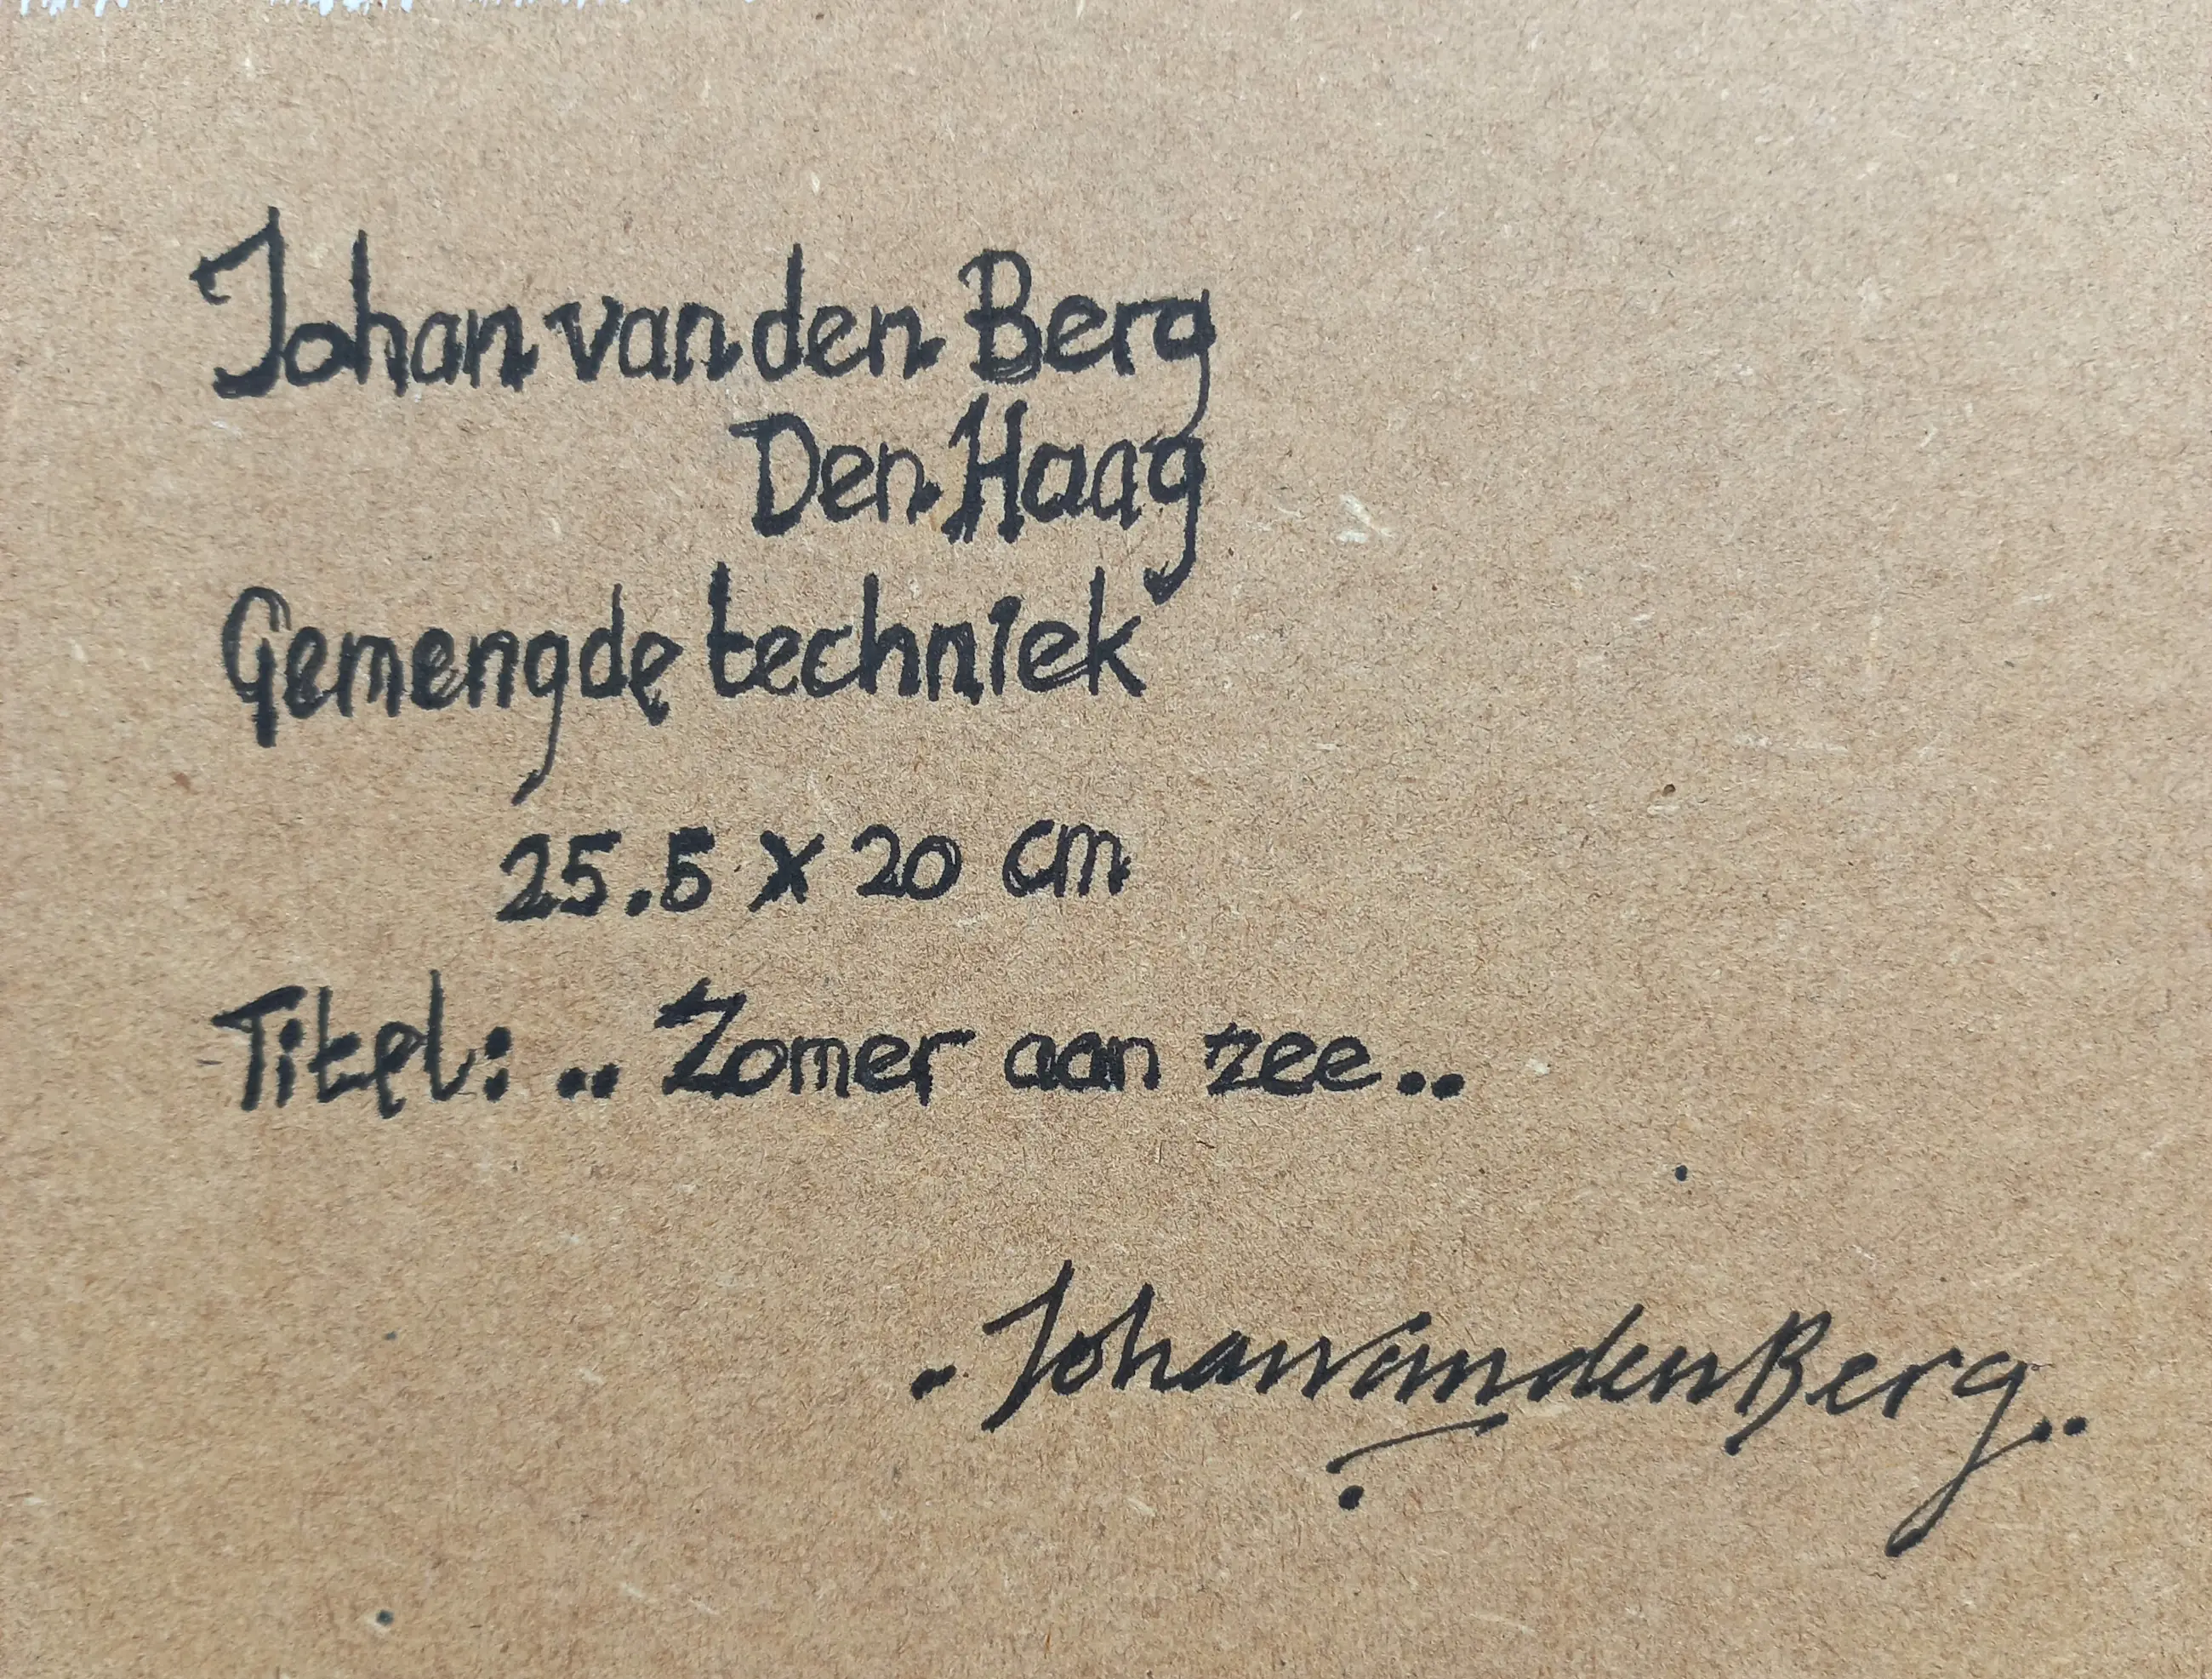 Johan van den Berg
Den Haag
Gemengde techniek
25.5 x 20 cm
Titel: .. Zomer aan zee..
. Johan van den Berg..